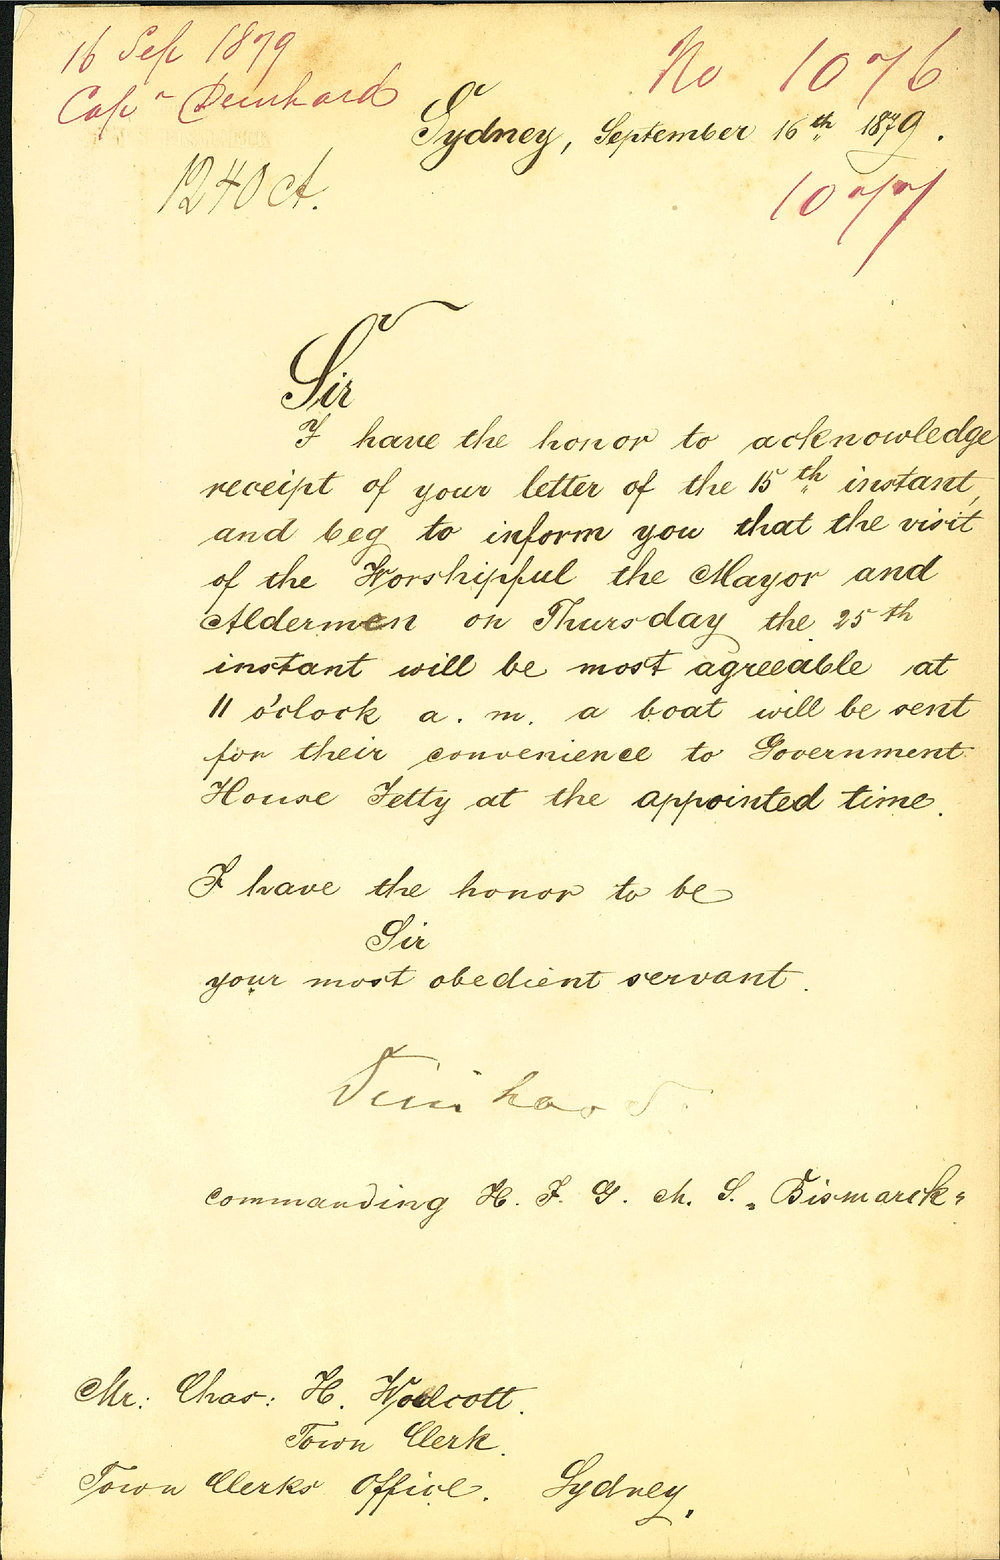 16 Sep 1879
Capn Deinhard
No 1076
Sydney, September 16th 1879.
1240 ct.
1077
Sir
I have the honor to acknowledge
receipt of your letter of the 15th instant,
and beg to inform you that the visit
of the Worshipful the Mayor and
Aldermen on Thursday the 25th
instant will be most agreeable at
11 o'clock a. m. a boat will be sent
for their convenience to Government
House Jetty at the appointed time.
I have the honor to be
Sir
your most obedient servant.
Deinhard.
commanding H. I. G. M. S. „Bismarck"
Mr: Chas: H. Woolcott.
Town Clerk.
Town Clerks Office. Sydney.